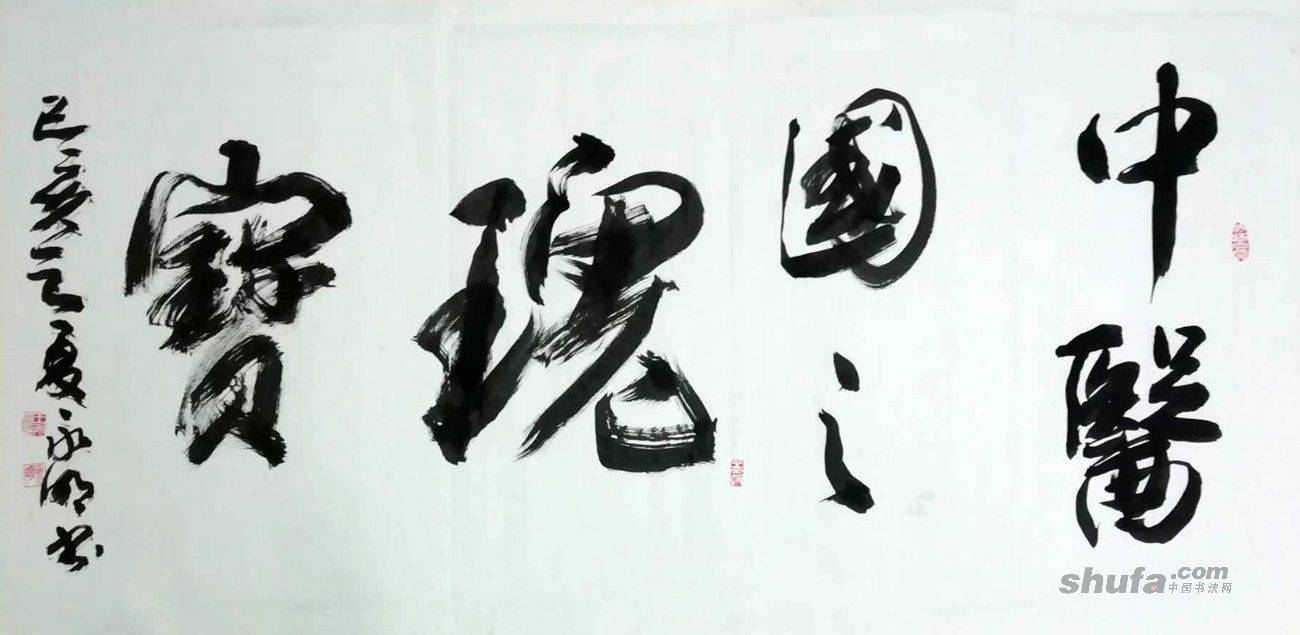 中醫
國之
瑰
寶
己亥之夏永明书
shufa.com
中国书法网